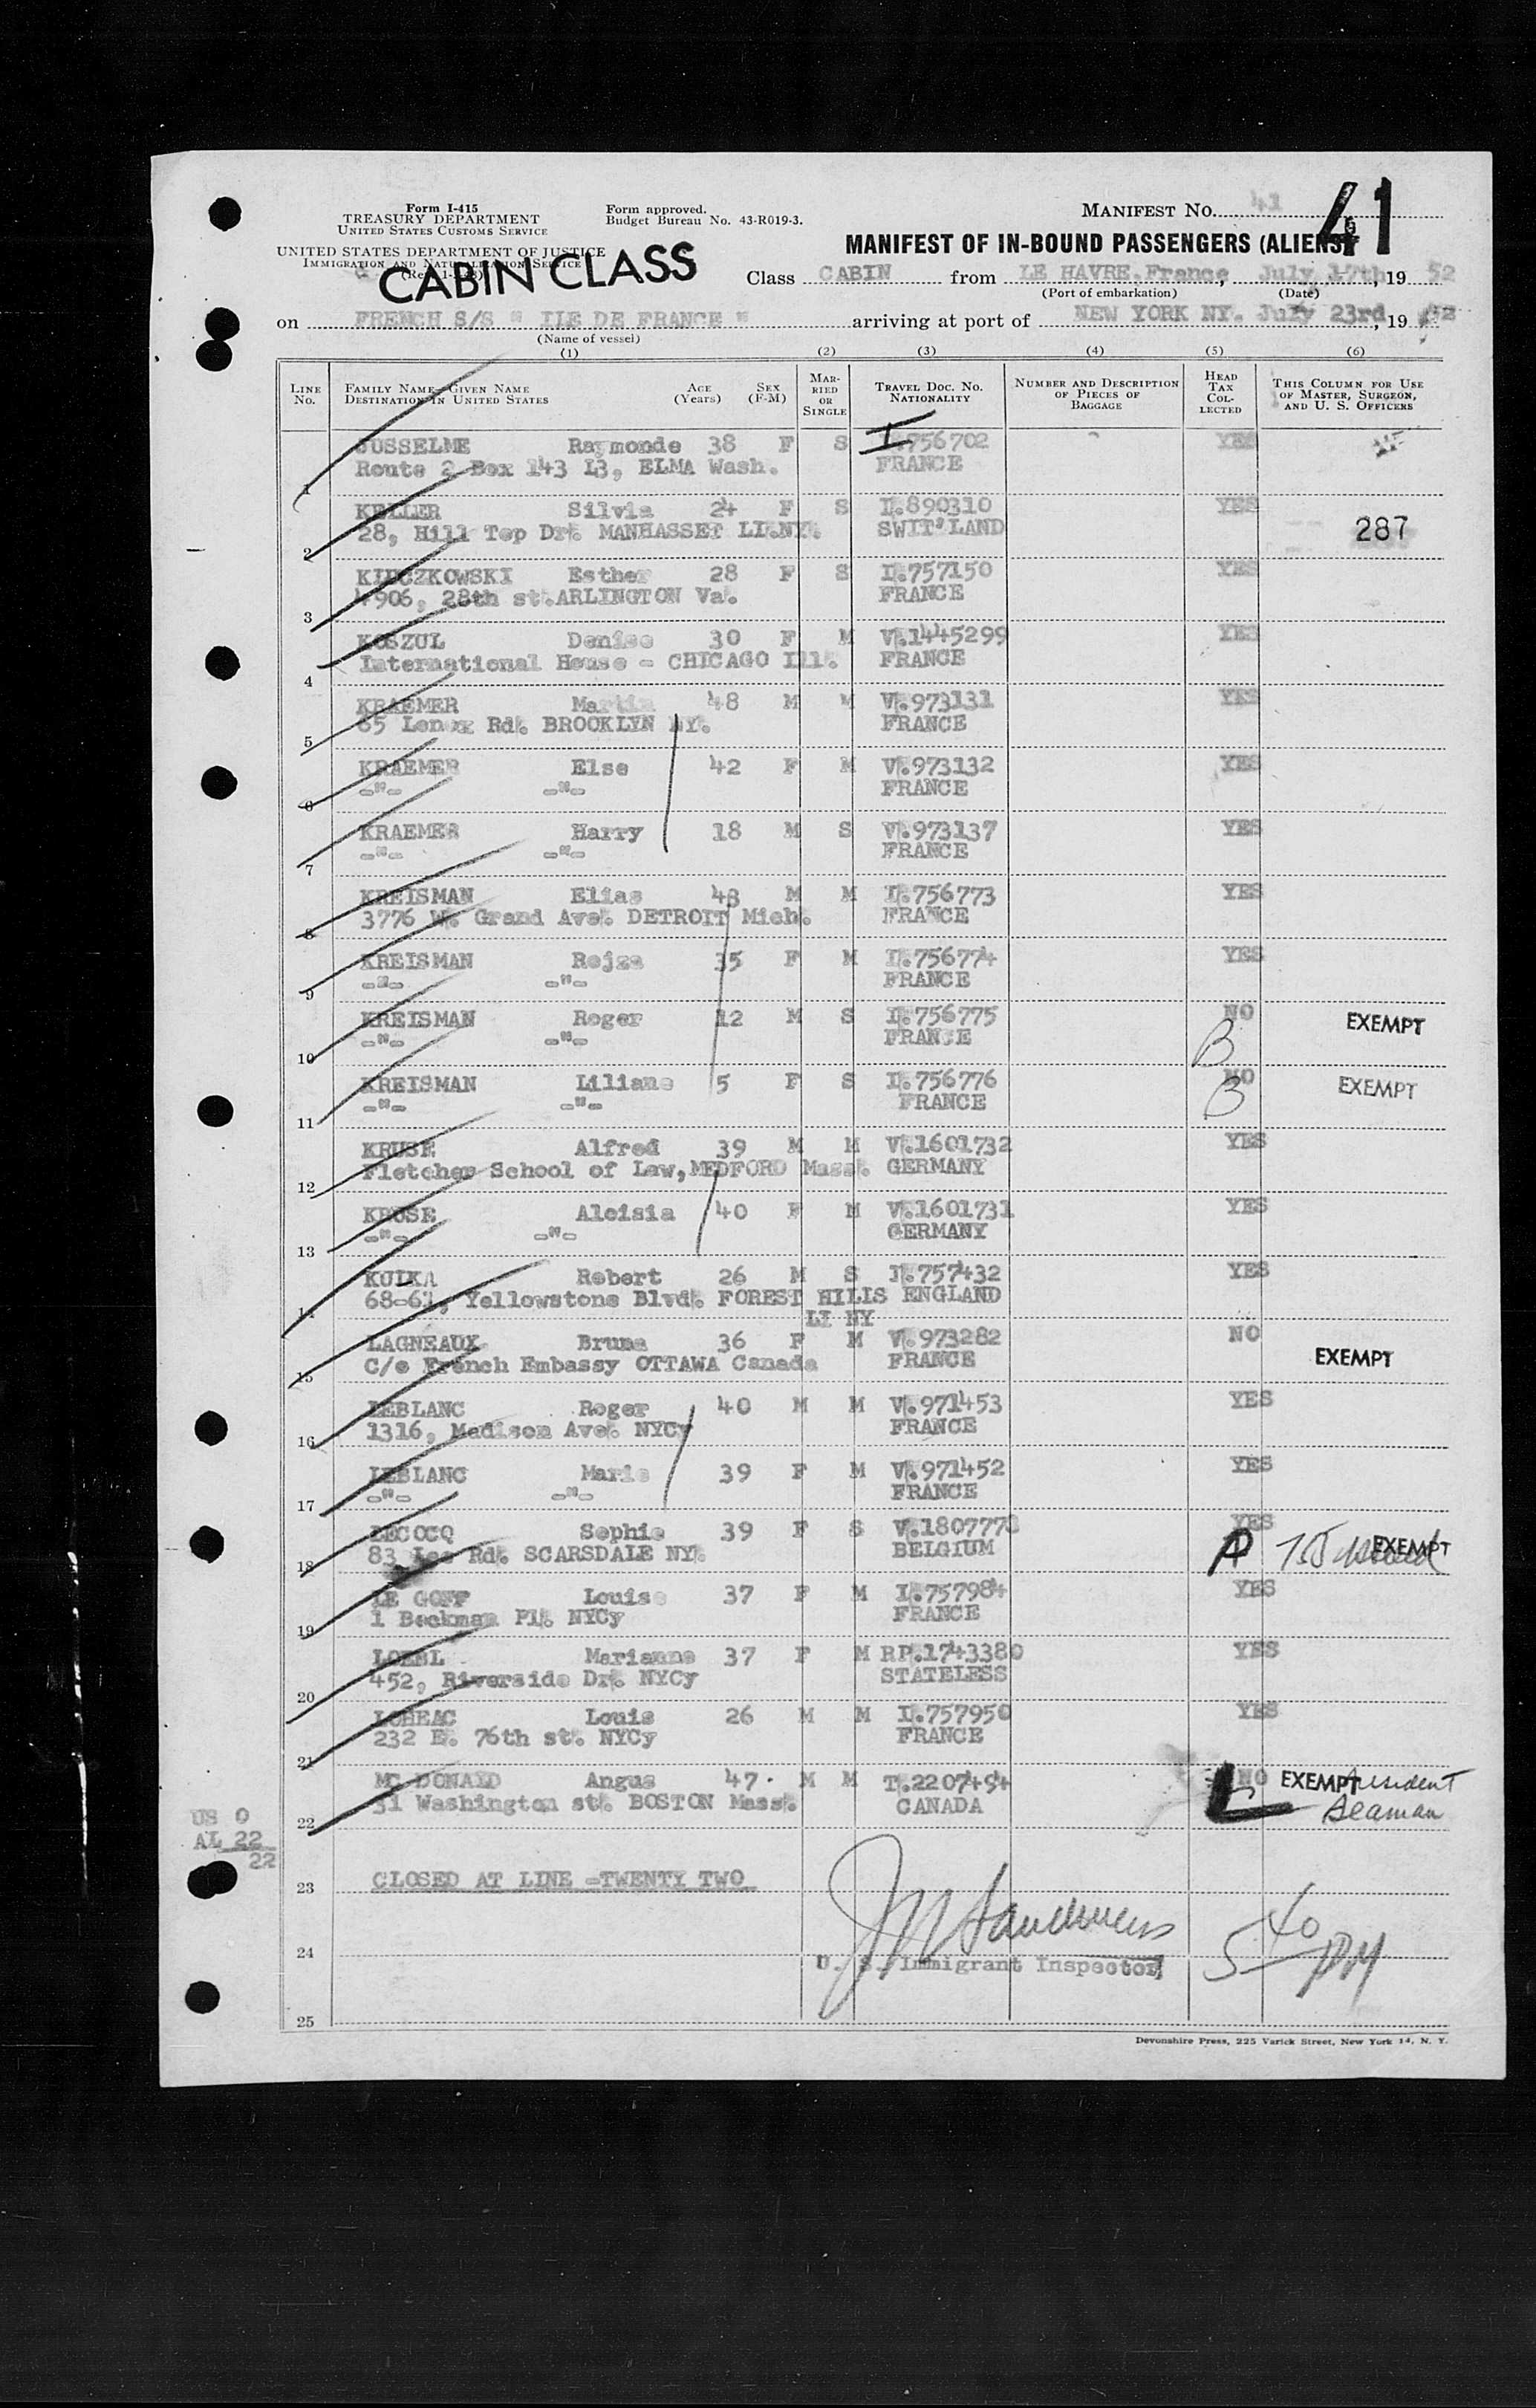 Form I-415
TREASURY DEPARTMENT
UNITED STATES CUSTOMS SERVICE
UNITED STATES DEPARTMENT OF JUSTICE
IMMIGRATION AND NATURALIZATION SERVICE
CABIN CLASS
Form approved.
Budget Bureau No. 43-R019-3.
MANIFEST NO. 41
41
MANIFEST OF IN-BOUND PASSENGERS (ALIENS)
Class CABIN from LE HAVRE, France, July 17th, 19 52
(Port of embarkation) (Date)
on FRENCH S/S " ILE DE FRANCE " arriving at port of NEW YORK NY. July 23rd, 19 52
(Name of vessel)
(1) (2) (3) (4) (5) (6)
LINE No. FAMILY NAME—GIVEN NAME DESTINATION IN UNITED STATES AGE (Years) SEX (F-M) MARRIED OR SINGLE TRAVEL DOC. NO. NATIONALITY NUMBER AND DESCRIPTION OF PIECES OF BAGGAGE HEAD TAX COLLECTED THIS COLUMN FOR USE OF MASTER, SURGEON, AND U. S. OFFICERS
1 JUSSELME Raymonde 38 F S I.756702 YES
Route 2 Box 143 L3, ELMA Wash. FRANCE
2 KELLER Silvia 24 F S I.890310 YES
28, Hill Top Dr. MANHASSET LI.NY. SWIT'LAND 287
3 KLUCZKOWSKI Esther 28 F S I.757150 YES
4906, 28th st.ARLINGTON Va. FRANCE
4 KOSZUL Denise 30 F M V.1445299 YES
International House - CHICAGO Ill. FRANCE
5 KRAEMER Martin 48 M M V.973131 YES
65 Lenox Rd. BROOKLYN NY. FRANCE
6 KRAEMER Else 42 F M V.973132 YES
-"- -"- FRANCE
7 KRAEMER Harry 18 M S V.973137 YES
-"- -"- FRANCE
8 KREISMAN Elias 48 M M I.756773 YES
3776 W. Grand Ave. DETROIT Mich. FRANCE
9 KREISMAN Rojza 35 F M I.756774 YES
-"- -"- FRANCE
10 KREISMAN Roger 12 M S I.756775 NO EXEMPT
-"- -"- FRANCE B
11 KREISMAN Liliane 5 F S I.756776 NO EXEMPT
-"- -"- FRANCE B
12 KRUSE Alfred 39 M M V.1601732 YES
Fletcher School of Law, MEDFORD Mass. GERMANY
13 KRUSE Aloisia 40 F M V.1601731 YES
-"- -"- GERMANY
14 KUIKA Robert 26 M S I.757432 YES
68-61, Yellowstone Blvd. FOREST HILLS ENGLAND
LI NY
15 LAGNEAUX Bruna 36 F M V.973282 NO
C/o French Embassy OTTAWA Canada FRANCE EXEMPT
16 LEBLANC Roger 40 M M V.971453 YES
1316, Madison Ave. NYCy FRANCE
17 LEBLANC Marie 39 F M V.971452 YES
-"- -"- FRANCE
18 LECOCQ Sophie 39 F S V.1807778 YES
83 Lee Rd. SCARSDALE NY. BELGIUM A EXEMPT
19 LE GOFF Louise 37 F M I.757984 YES
1 Beekman Pl. NYCy FRANCE
20 LOEBL Marianne 37 F M RP.1743380 YES
452, Riverside Dr. NYCy STATELESS
21 LOHEAC Louis 26 M M I.757950 YES
232 E. 76th st. NYCy FRANCE
22 MC DONALD Angus 47. M M T.2207494 NO EXEMPT resident
31 Washington st. BOSTON Mass. CANADA L Seaman
US 0
AL 22
22
23 CLOSED AT LINE -TWENTY TWO
24
U. S. Immigrant Inspector 5 40 PM
25
Devonshire Press, 225 Varick Street, New York 14, N. Y.